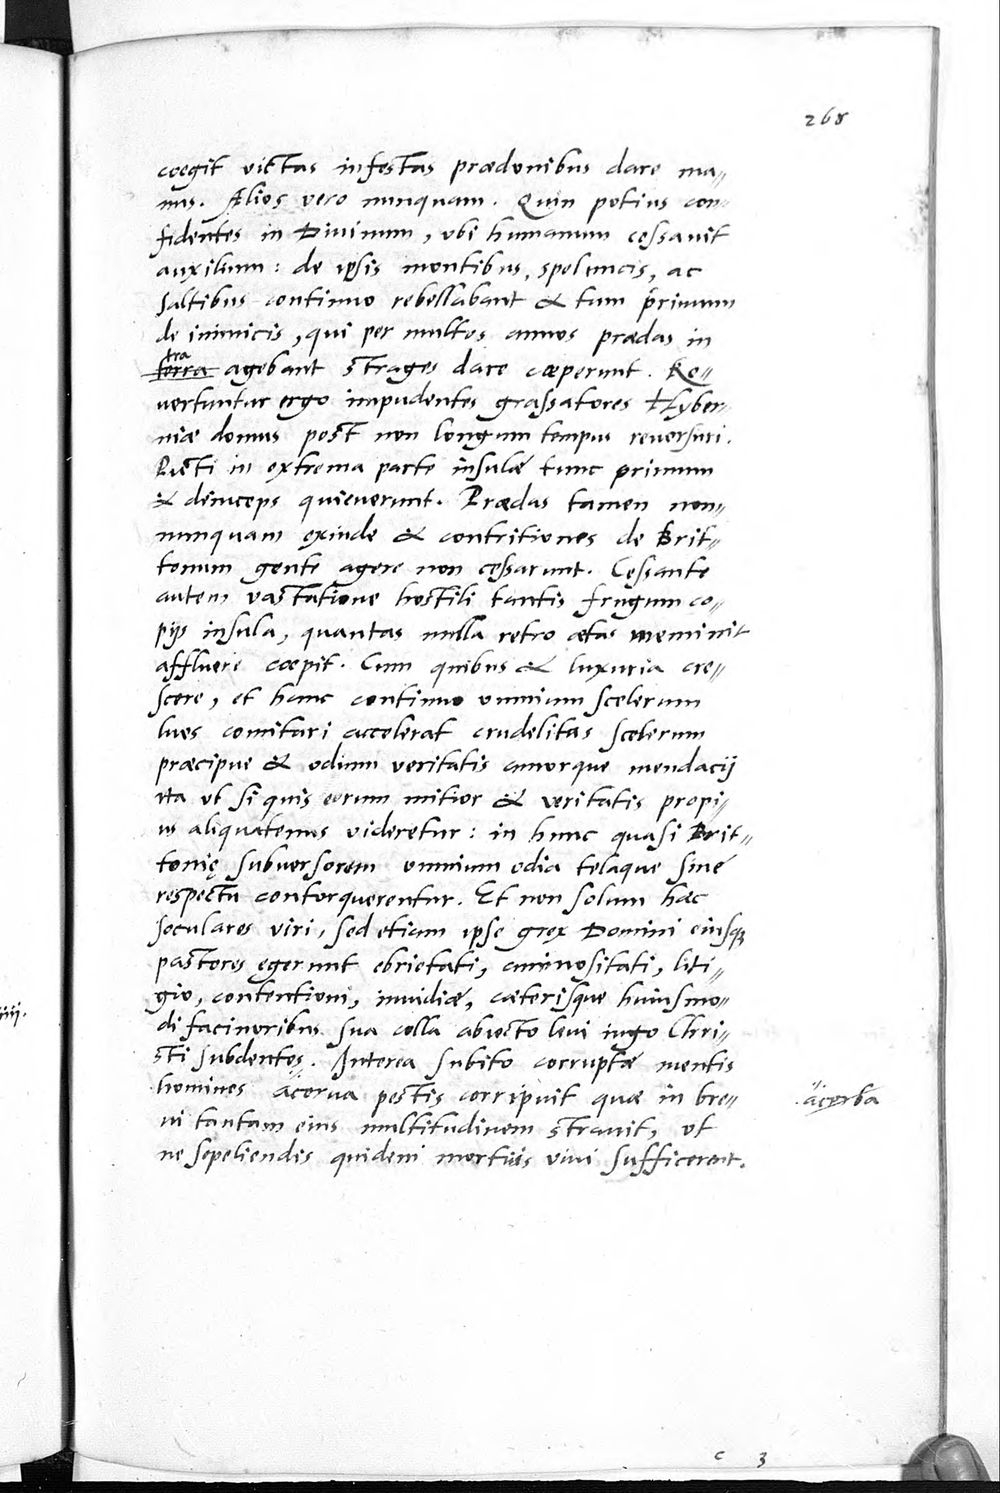 268
coegit victas infestas prædonibus dare ma〃
nus. Alios vero nunquam. Quin potius con〃
fidentes in Divinum, vbi humanum cessavit
auxilium: de ipsis montibus, speluncis, ac
saltibus continuo rebellabant & tum primum
de inimicis, qui per multos annos prædas in
tra
terra agebant strages dare cœperunt. Re〃
vertuntur ergo impudentes grassatores Hyber〃
niæ domus post non longum tempus reversuri.
Picti in extrema parte insulæ tunc primum
& deinceps quieverunt. Prædas tamen non〃
nunquam exinde & contritiones de Brit〃
tonum gente agere non cessarunt. Cessante
autem vastatione hostili tantis frugum co〃
pijs insula, quantas nulla retro ætas meminit
affluere cœpit. Cum quibus & luxuria cre〃
scere, et hanc continuo omnium scelerum
lues comitari accelerat crudelitas scelerum
præcipue & odium veritatis amorque mendacij
ita vt si quis eorum mitior & veritatis propi〃
us aliquatenus videretur: in hunc quasi Brit〃
tonię subversorem omnium odia telaque sine
respectu contorquerentur. Et non solum hæc
seculares viri, sed etiam ipse grex Domini eiusq;
pastores egerunt ebrietati, animositati, liti〃
gio, contentioni, invidiæ, cæterisque huiusmo〃
di facinoribus sua colla abiecto levi iugo Chri〃
sti subdentes. Interea subito corruptæ mentis
homines acerva pestis corripuit quæ in bre〃
acerba
vi tantam eius multitudinem stravit, vt
ne sepeliendis quidem mortuis vivi sufficerent.
c 3